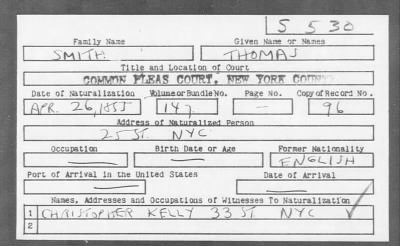 S 530
Family Name Given Name or Names
SMITH THOMAS
Title and Location of Court
COMMON PLEAS COURT, NEW YORK COUNTY
Date of Naturalization Volume or Bundle No. Page No. Copy of Record No.
APR. 26, 1855 147 — 96
Address of Naturalized Person
25 ST. NYC
Occupation Birth Date or Age Former Nationality
— — ENGLISH
Port of Arrival in the United States Date of Arrival
— —
Names, Addresses and Occupations of Witnesses To Naturalization
1 CHRISTOPHER KELLY 33 ST NYC
2